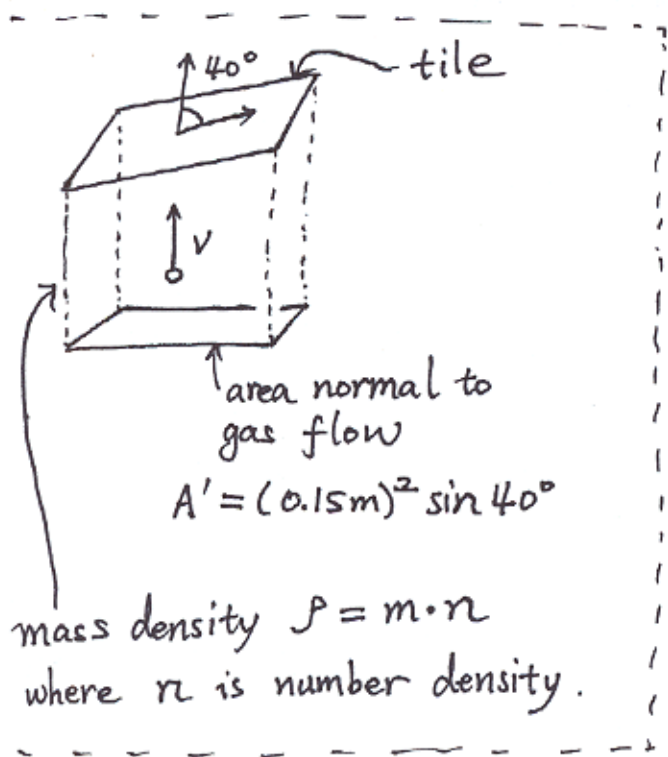 40°
tile
v
area normal to
gas flow
A' = (0.15m)² sin 40°
mass density ρ = m·n
where n is number density.